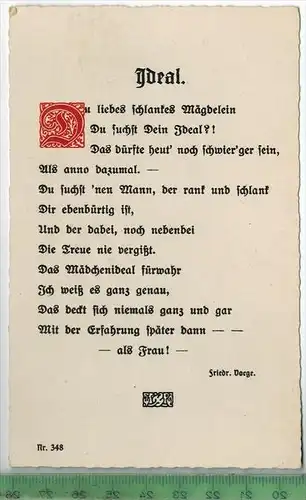 Ideal.
Du liebes schlankes Mägdelein
Du suchst Dein Ideal?!
Das dürfte heut' noch schwier'ger sein,
Als anno dazumal. —
Du suchst 'nen Mann, der rank und schlank
Dir ebenbürtig ist,
Und der dabei, noch nebenbei
Die Treue nie vergißt.
Das Mädchenideal fürwahr
Ich weiß es ganz genau,
Das deckt sich niemals ganz und gar
Mit der Erfahrung später dann — —
— als Frau! —
Friedr. Voege.
Nr. 348